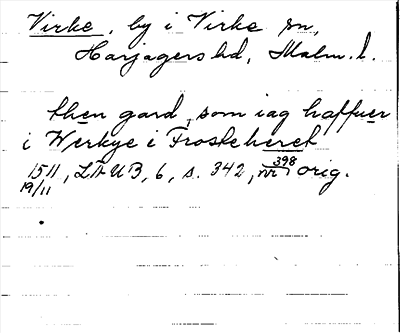 Virke, by i Virke sn,
Harjagers hd, Malm. l.
then gard, som iag haffuer
i Werkye i Froskeheret
1511, LÄUB, 6, s. 342, nr 398 orig.
19/11